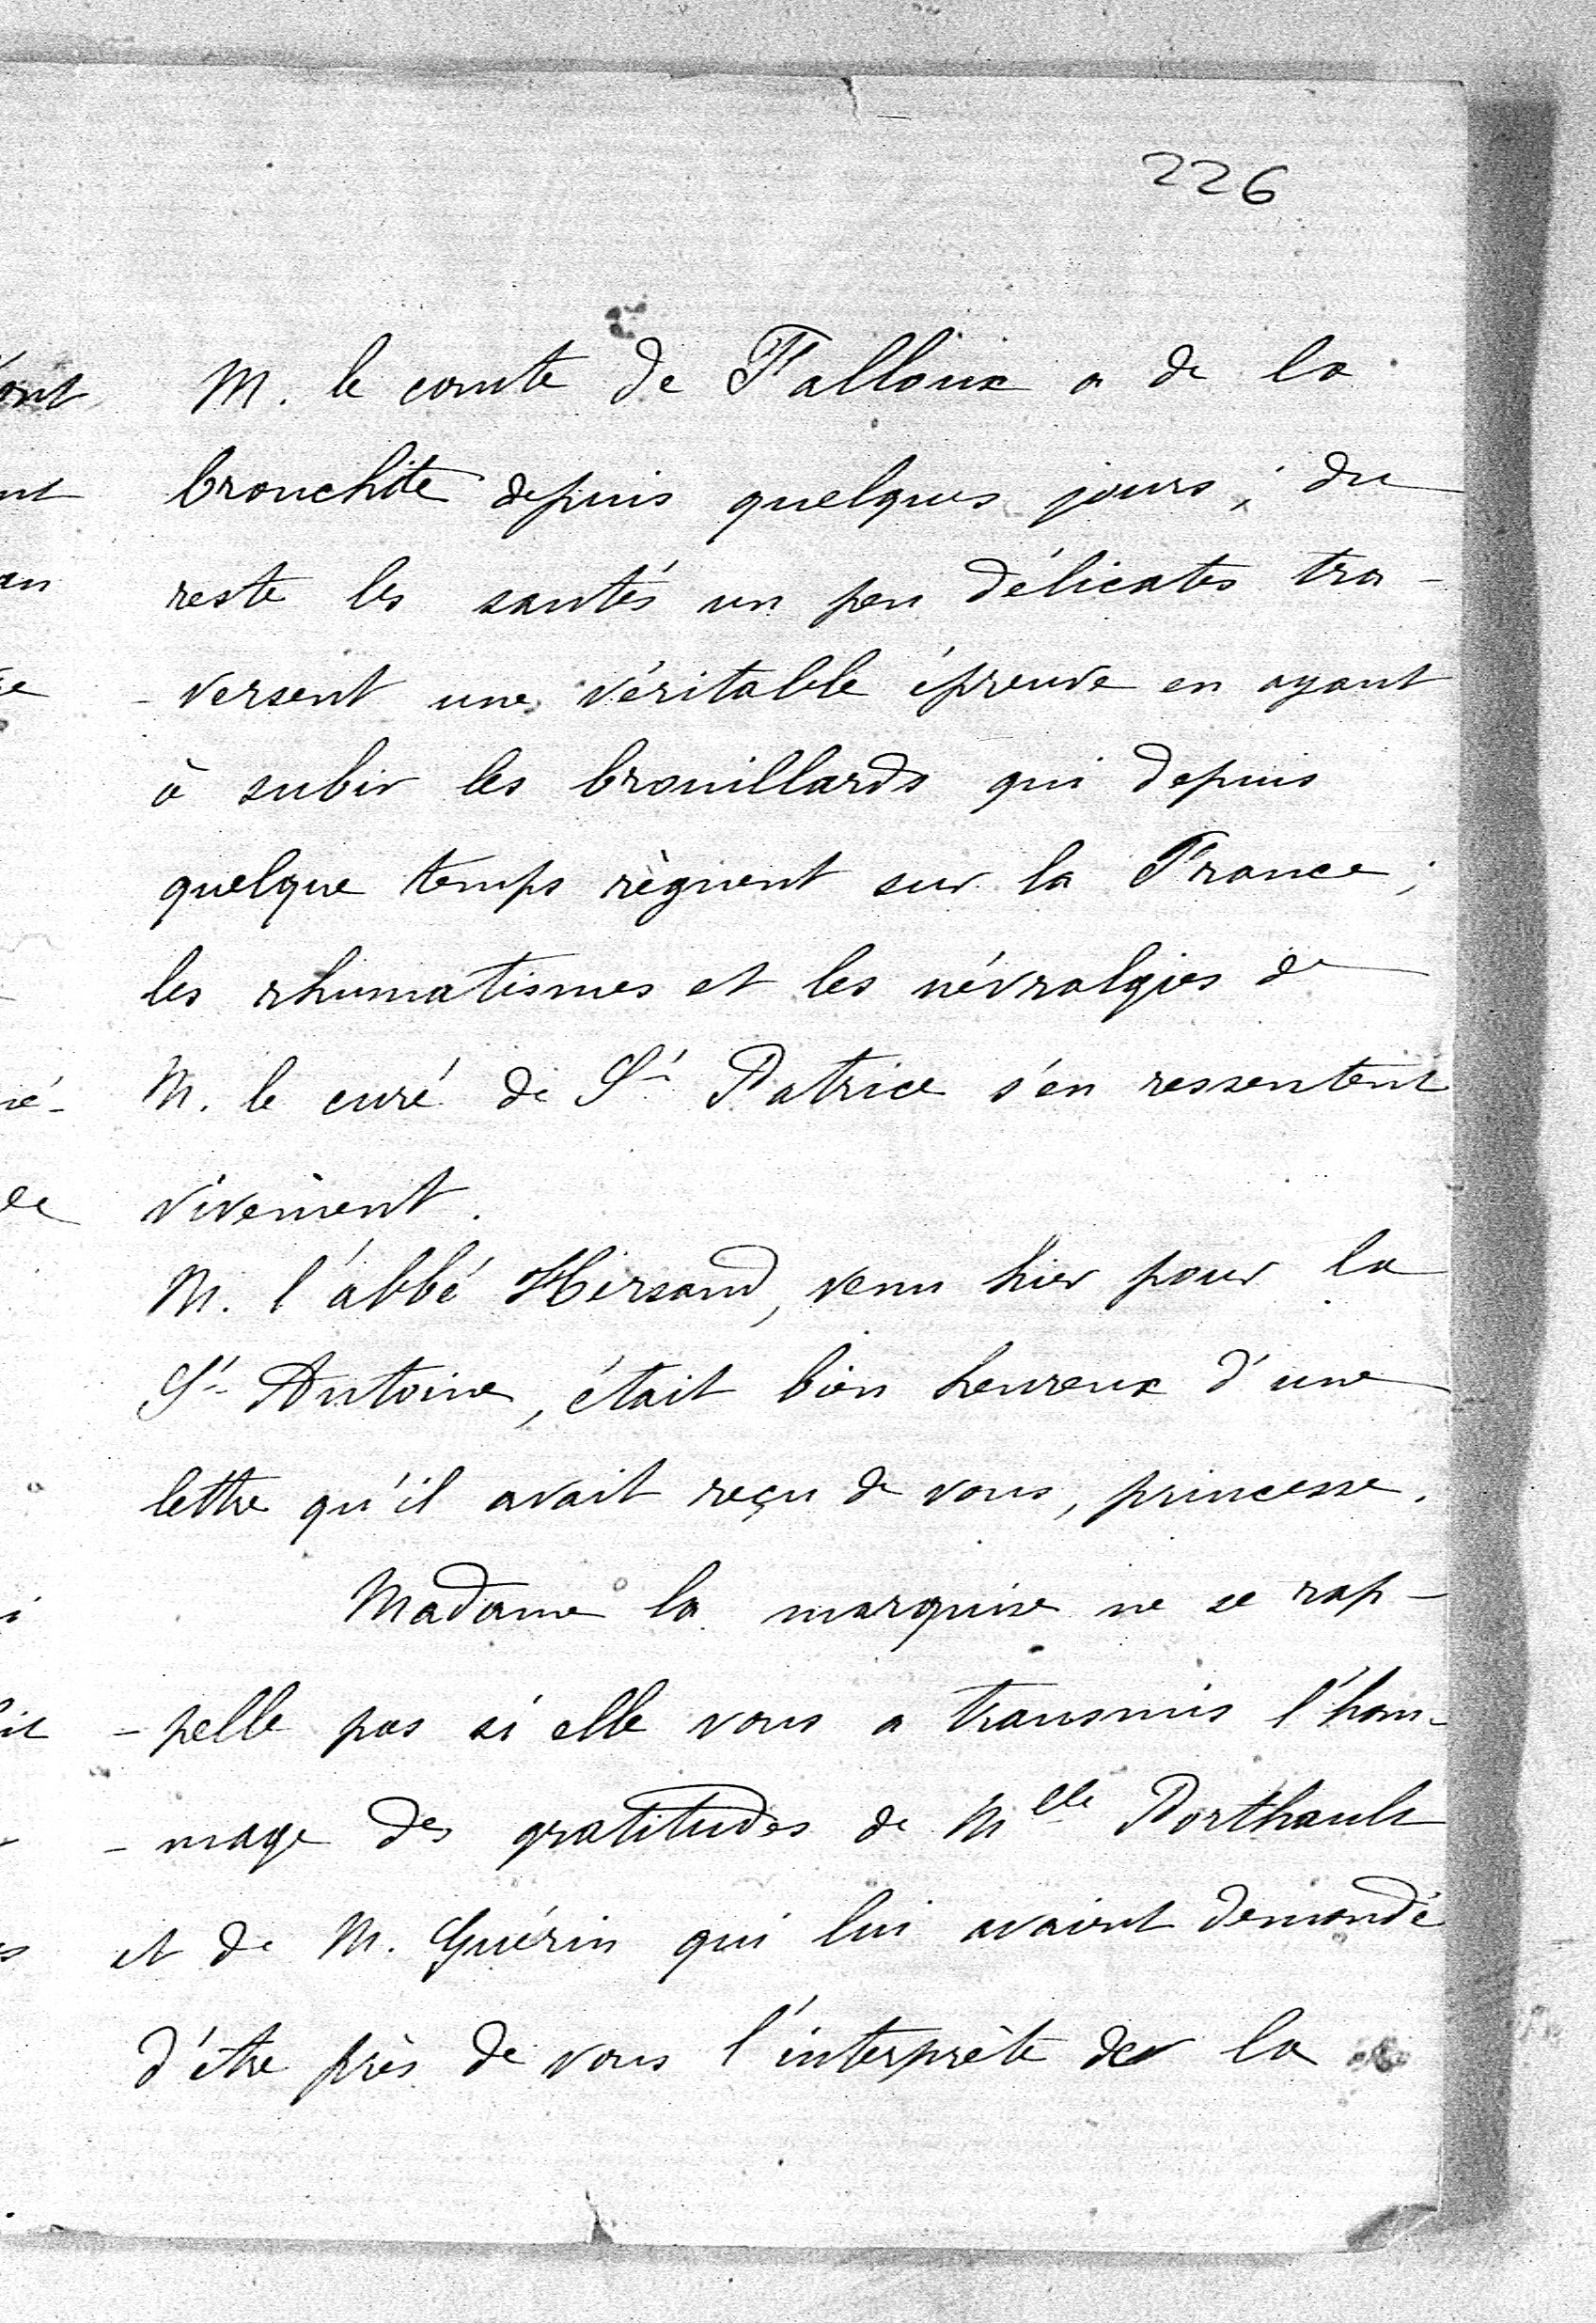 226
M. le comte de Falloux a de la
bronchite depuis quelques jours ; du
reste les santés un peu délicates tra-
-versent une véritable épreuve en ayant
à subir les brouillards qui depuis
quelque temps règnent sur la France ;
les rhumatismes et les névralgies de
M. le curé de St Patrice s'en ressentent
vivement.
M. l'abbé Hersand, venu hier pour la
St Antoine, était bien heureux d'une
lettre qu'il avait reçu de vous, princesse.
Madame la marquise ne se rap-
-pelle pas si elle vous a transmis l'hom-
-mage des gratitudes de Mlle Porthault
et de M. Guérin qui lui avaient demandé
d'être près de vous l'interprète de la